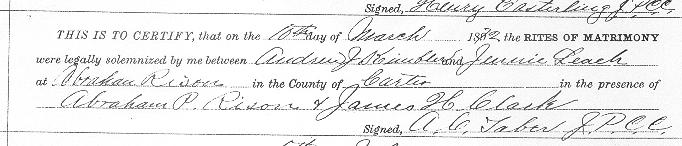 Signed, Henry Easterling J.P.C.C.
THIS IS TO CERTIFY, that on the 10th day of March 1892, the RITES OF MATRIMONY
were legally solemnized by me between Andrew J Kimbler and Jennie Leach
at Abraham Rison in the County of Carter in the presence of
Abraham P. Rison & James H Clark
Signed, A. C. Taber J.P.C.C.